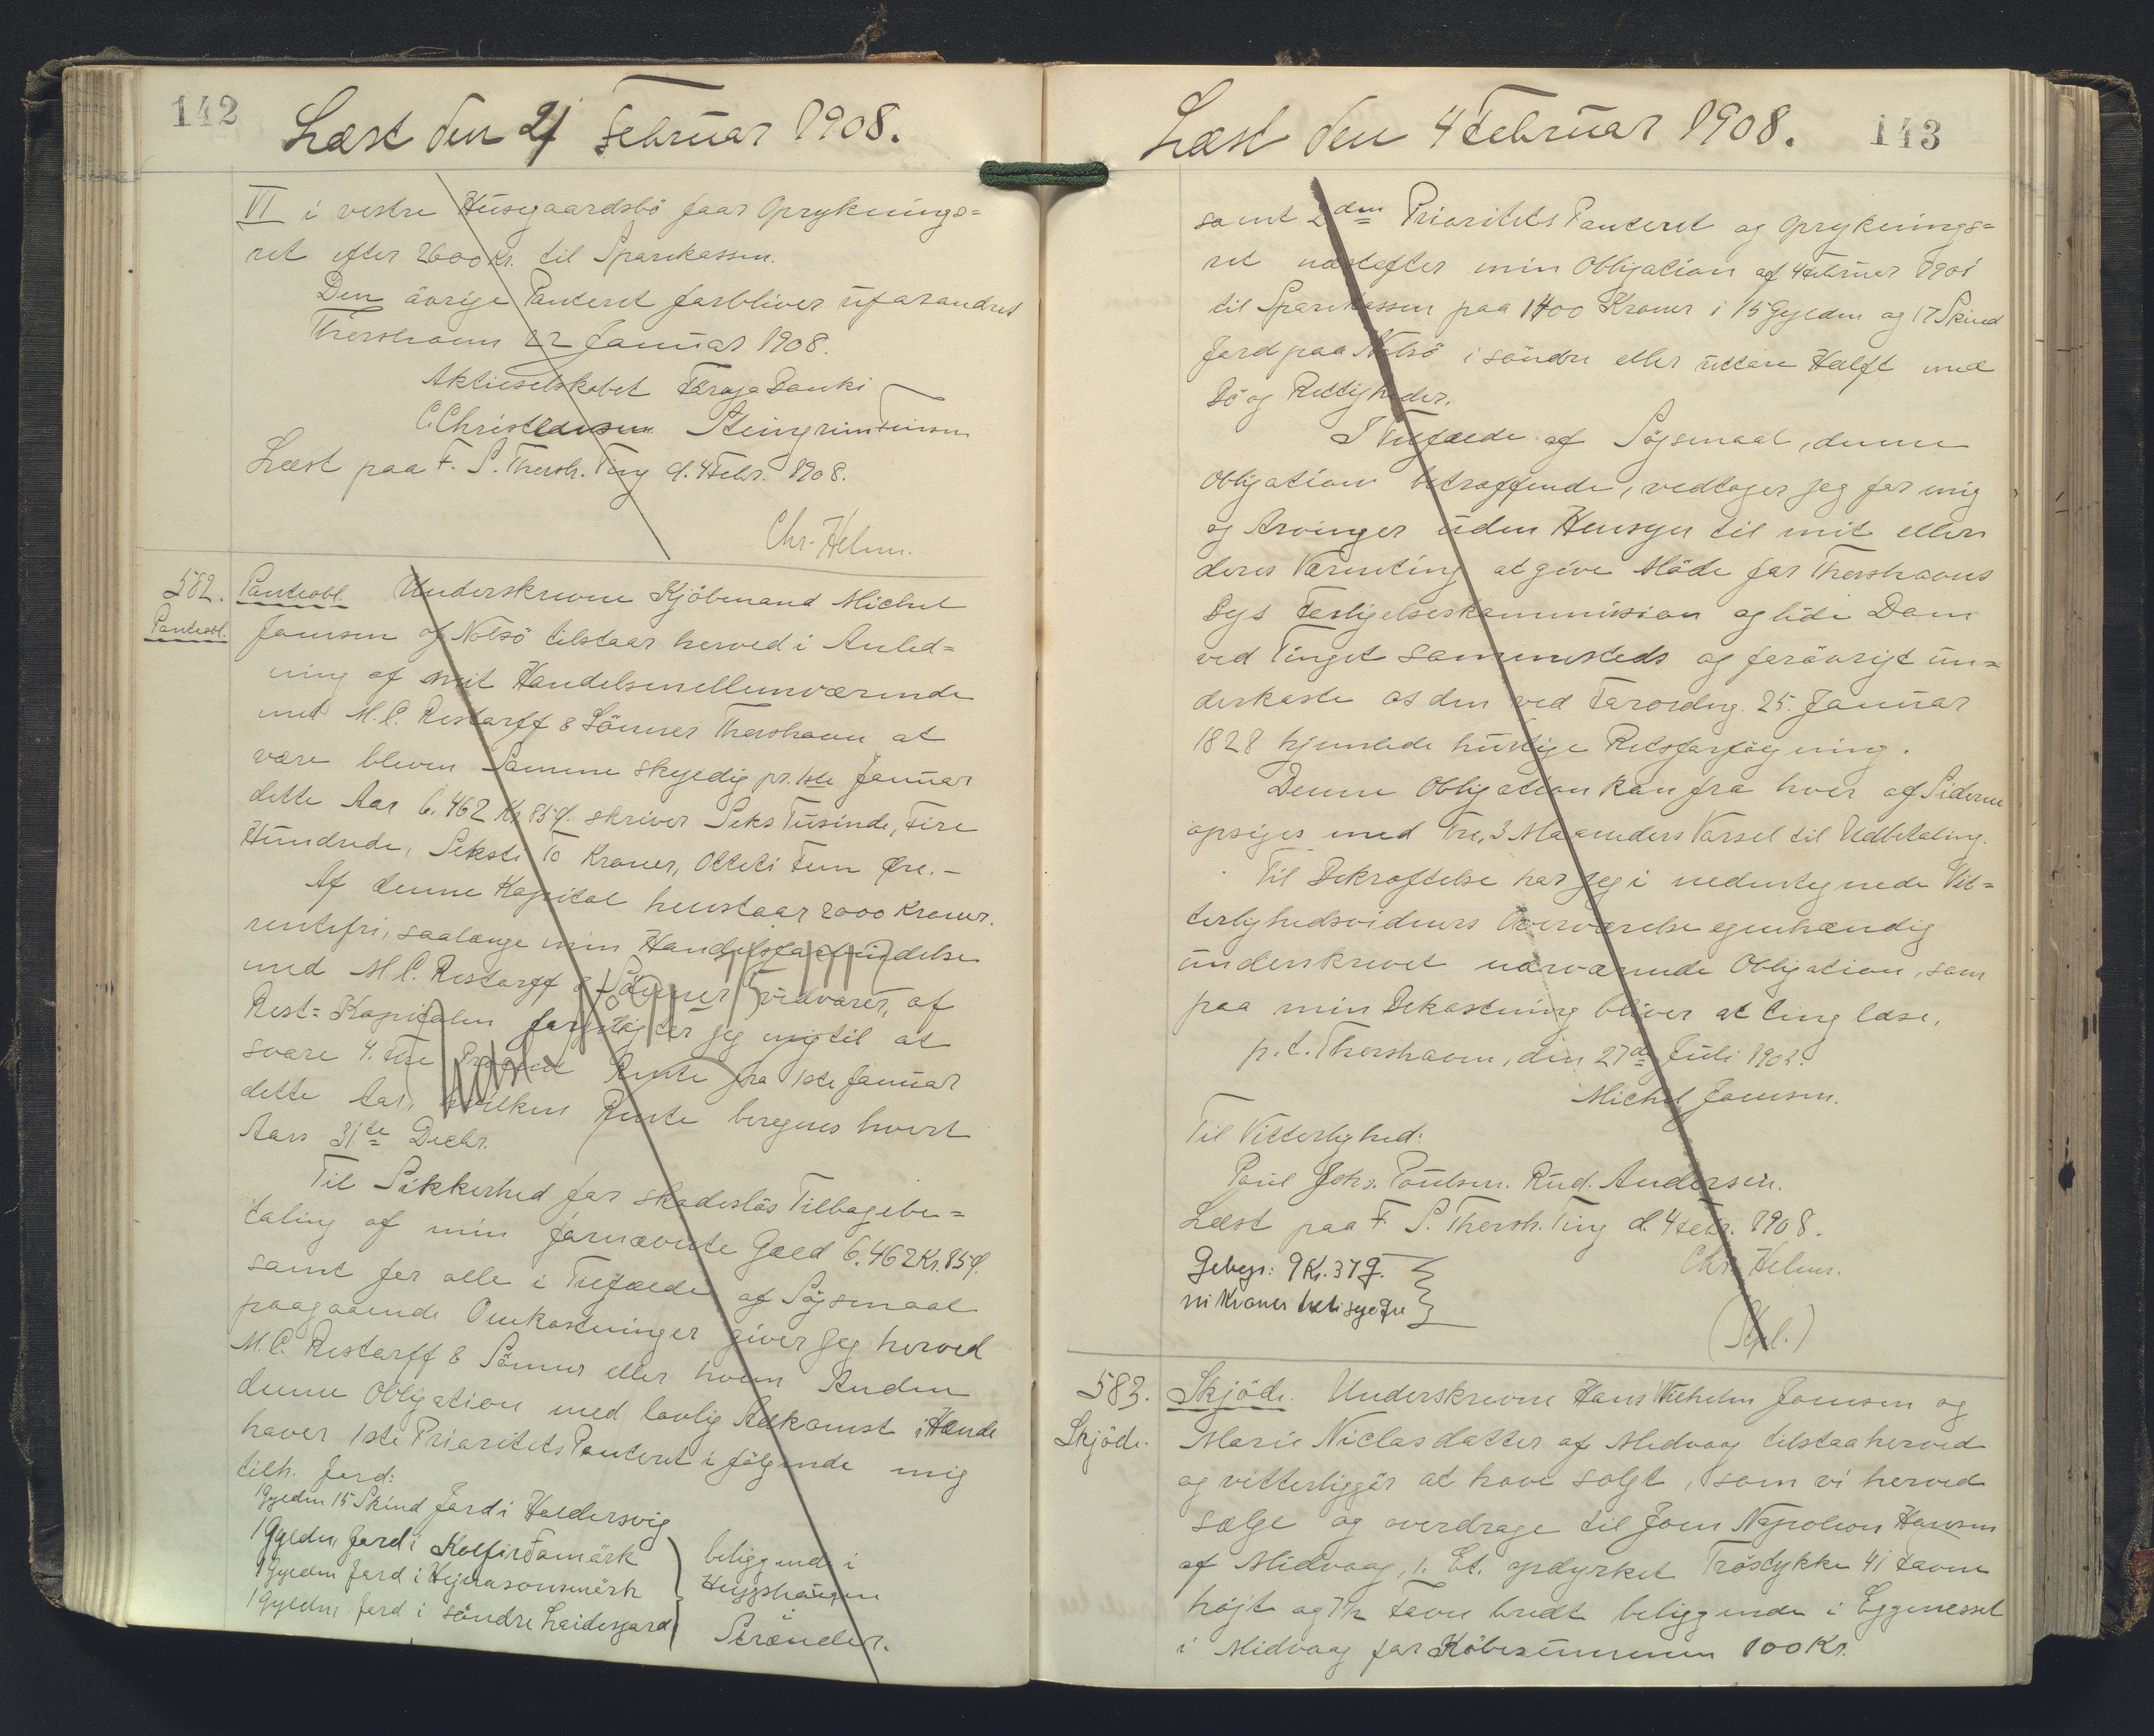 142
Læst den 4 Februar 1908.
VI i vestre Husegaardsbö faar Opryknings=
ret efter 2600 Kr. til Sparekassen.
Den övrige Panteret forbliver uforandret
Thorshavn 22 Januar 1908.
Aktieselskabet Föroya Banki
C. Christensen
Læst paa F. S. Thorsh. Ting d. 4 Febr. 1908.
Chr. Helms.
582.
Panteobl.
Panteobl. Underskrevne Kjöbmand Michel
Joensen af Nolsö tilstaar herved i Anled=
ning af mit Handelsmellemværende
med M. C. Restorff & Sönner Thorshavn at
være bleven Samme skyldig pr. 1ste Januar
dette Aar 6.462 Kr 85 Ø. skriver Seks Tusinde, Fire
Hundrede, Seksti To Kroner, Otteti Fem Øre.-
Af denne Kapital henstaar 2000 Kroner.
rentefri, saalænge min Handelsforbindelse
med M. C. Restorff & Sönner vedvarer, af
Rest=Kapitalen forpligter jeg mig til at
svare 4. Fire Procent Rente fra 1ste Januar
dette Aar, hvilken Rente beregnes hvert
Aars 31te Decbr.
Til Sikkerhed for skadeslös Tilbagebe=
taling af min fornævnte Gæld 6.462 Kr. 85 Ø.
samt for alle i Tilfælde af Søgsmaal
paagaaende Omkostninger giver jeg herved
M. C. Restorff & Sönner eller hvem Anden
denne Obligation med lovlig Adkomst i Hænde
haver 1ste Prioritets Panteret i fölgende mig
tilh. Jord:
1 Gylden 15 Skind Jord i Haldersvig
1 Gylden Jord i
1 Gylden Jord i
1 Gylden Jord i söndre
beliggende i
Strænder.
Læst den 4 Februar 1908.
143
samt 2den Prioritets Panteret og Opryknings=
ret næstefter min Obligation af 4 Februar 1901
til Sparekassen paa 1400 Kroner i 15 Gylden og 17 Skind
Jord paa Nolsö i söndre eller uttare Halft med
Bö og Rettigheder.
I Tilfælde af Søgsmaal, denne
Obligation betræffende, vedtager jeg for mig
og Arvinger uden Hensyn til mit eller
deres Værneting at give Möde for Thorshavns
Bys Forligelseskommission og lide Dom
ved Tinget sammesteds og forövrigt un=
derkaste os den ved Forordng. 25. Januar
1828 hjemlede hurtige Retsforfölgning.
Denne Obligation kan fra hver af Siderne
opsiges med Tre, 3 Maaneders Varsel til Udbetaling.
Til Bekræftelse har jeg i nedentegnede Vit=
terlighedsvidners Overværelse egenhændig
underskrevet nærværende Obligation, som
paa min Bekostning bliver at tinglæse.
p. t. Thorshavn, den 27de Juli 1903.
Michel Joensen.
Til Vitterlighed:
Poul Johs. Poulsen. Rud. Andersen.
Læst paa F. S. Thorsh. Ting d. 4 Febr. 1908.
Chr. Helms.
Gebyr: 9 Kr. 37 Ø.
ni Kroner
583.
Skjöde.
Skjöde. Underskrevne Hans Vilhelm Joensen og
Marie Niclasdatter af Midvaag tilstaa herved
og vitterliggör at have solgt, som vi herved
sælge og overdrage til Joen Napoleon Hansen
af Midvaag, 1. Et. opdyrket Tröstykke 41 Favne
højt og 7½ Favne bredt beliggende i Eggenesset
i Midvaag for Köbesummen 100 Kr.